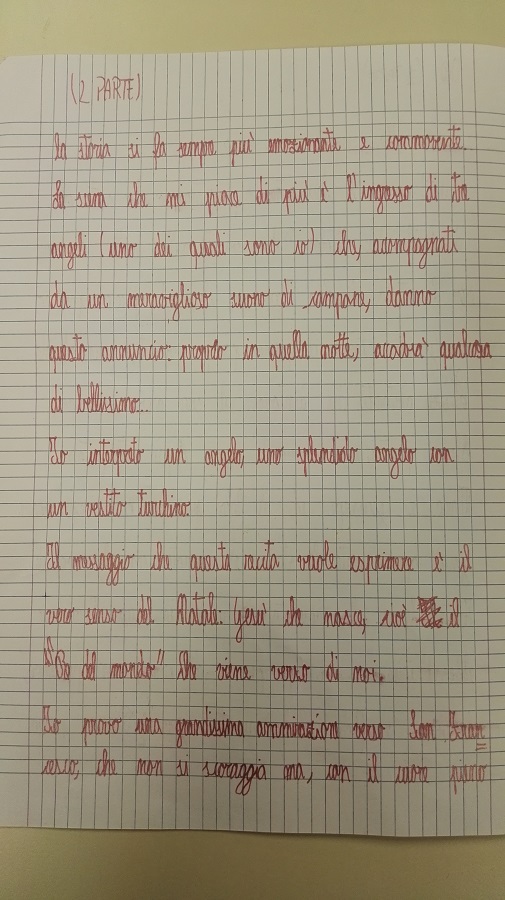 (2 PARTE)
La storia si fa sempre più emozionante e commovente.
La scena che mi piace di più è l'ingresso di tre
angeli (uno dei quali sono io) che, accompagnati
da un meraviglioso suono di campane, danno
questo annuncio: proprio in quella notte, accadrà qualcosa
di bellissimo...
Io interpreto un angelo, uno splendido angelo con
un vestito turchino.
Il messaggio che questa recita vuole esprimere è il
vero senso del Natale: Gesù che nasce, cioè il
"Re del mondo" che viene verso di noi.
Io provo una grandissima ammirazione verso San Fran
cesco, che non si scoraggia ma, con il cuore pieno